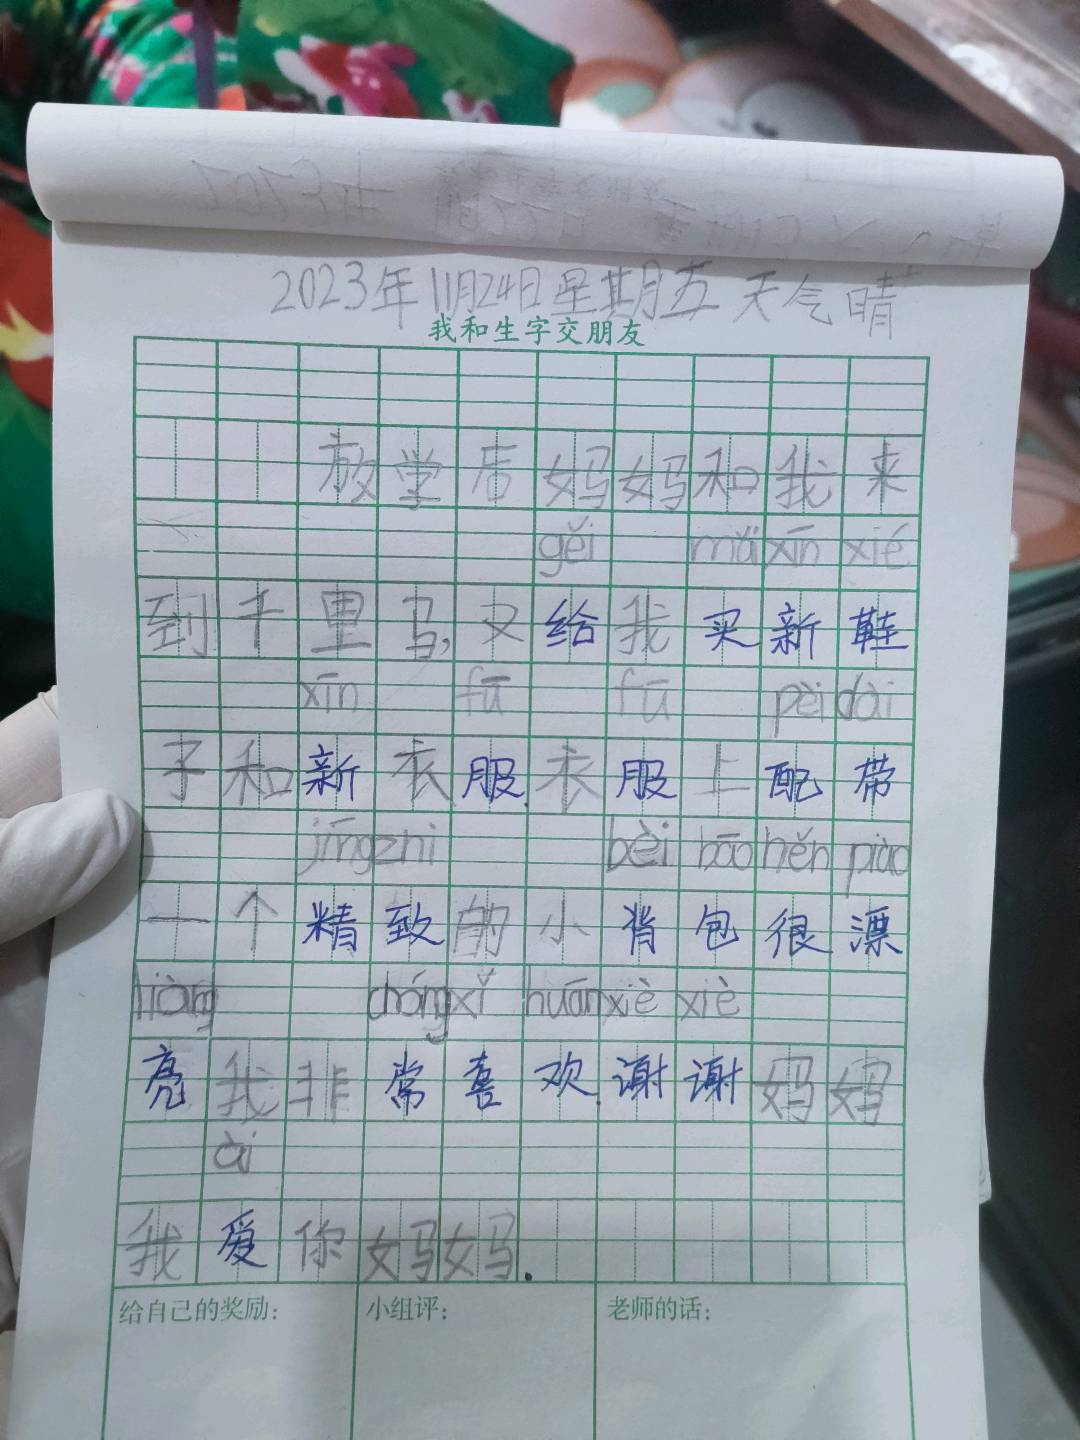 2023年11月24日星期五 天气晴
我和生字交朋友
放学后妈妈和我来
gěi mǎi xīn xié
到千里马,又给我买新鞋
xīn fū fū pèi dài
子和新衣服.衣服上配带
jīng zhi bèi bāo hěn piào
一个精致的小背包很漂
liàng cháng xǐ huān xiè xiè
亮我非常喜欢.谢谢妈妈
ài
我爱你妈妈.
给自己的奖励: 小组评: 老师的话: